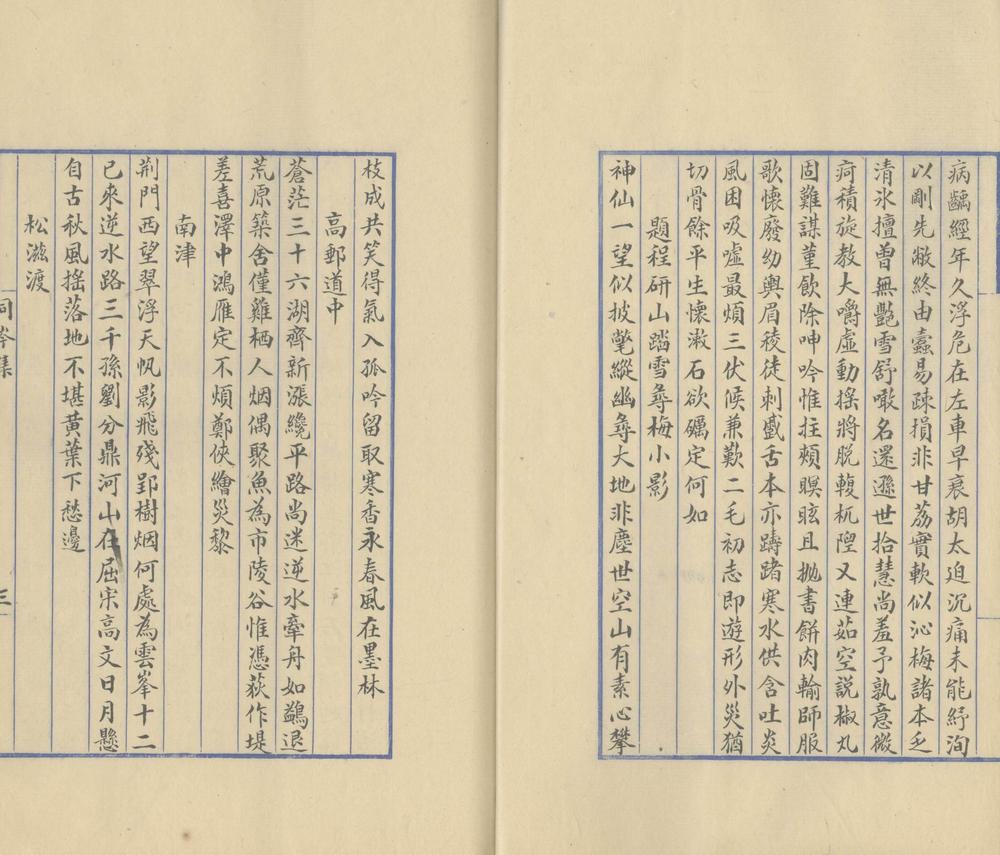 病齲經年久浮危在左車早衰胡太迫沉痛未能紓洵
以剛先敝終由蠧易疎損非甘荔實軟似沁梅諸本乏
清氷擅曽無艷雪舒噉名還遜世拾慧尚羞予孰意微
疴積旋教大嚼虛動揺將脫輹杌隉又連茹空説椒丸
固難謀堇飲除呻吟惟拄頰瞑眩且拋書餅肉輸師服
歌懷廢幼輿眉稜徒刺蹙舌本亦躊躇寒水供含吐炎
風困吸嘘最煩三伏候兼歎二毛初志即遊形外災猶
切骨餘平生懷漱石欲礪定何如
題程研山踏雪尋梅小影
神仙一望似披氅縱幽尋大地非塵世空山有素心攀
枝成共笑得氣入孤吟留取寒香永春風在墨林
高郵道中
蒼茫三十六湖齊新漲纔平路尚迷逆水牽舟如鷁退
荒原築舍僅雞栖人烟偶聚魚為市陵谷惟憑荻作堤
差喜澤中鴻雁定不煩鄭俠繪災黎
南津
荆門西望翠浮天帆影飛殘郢樹烟何處為雲峯十二
已來逆水路三千孫劉分鼎河山在屈宋高文日月懸
自古秋風揺落地不堪黄葉下愁邊
松滋渡
同岑集
三